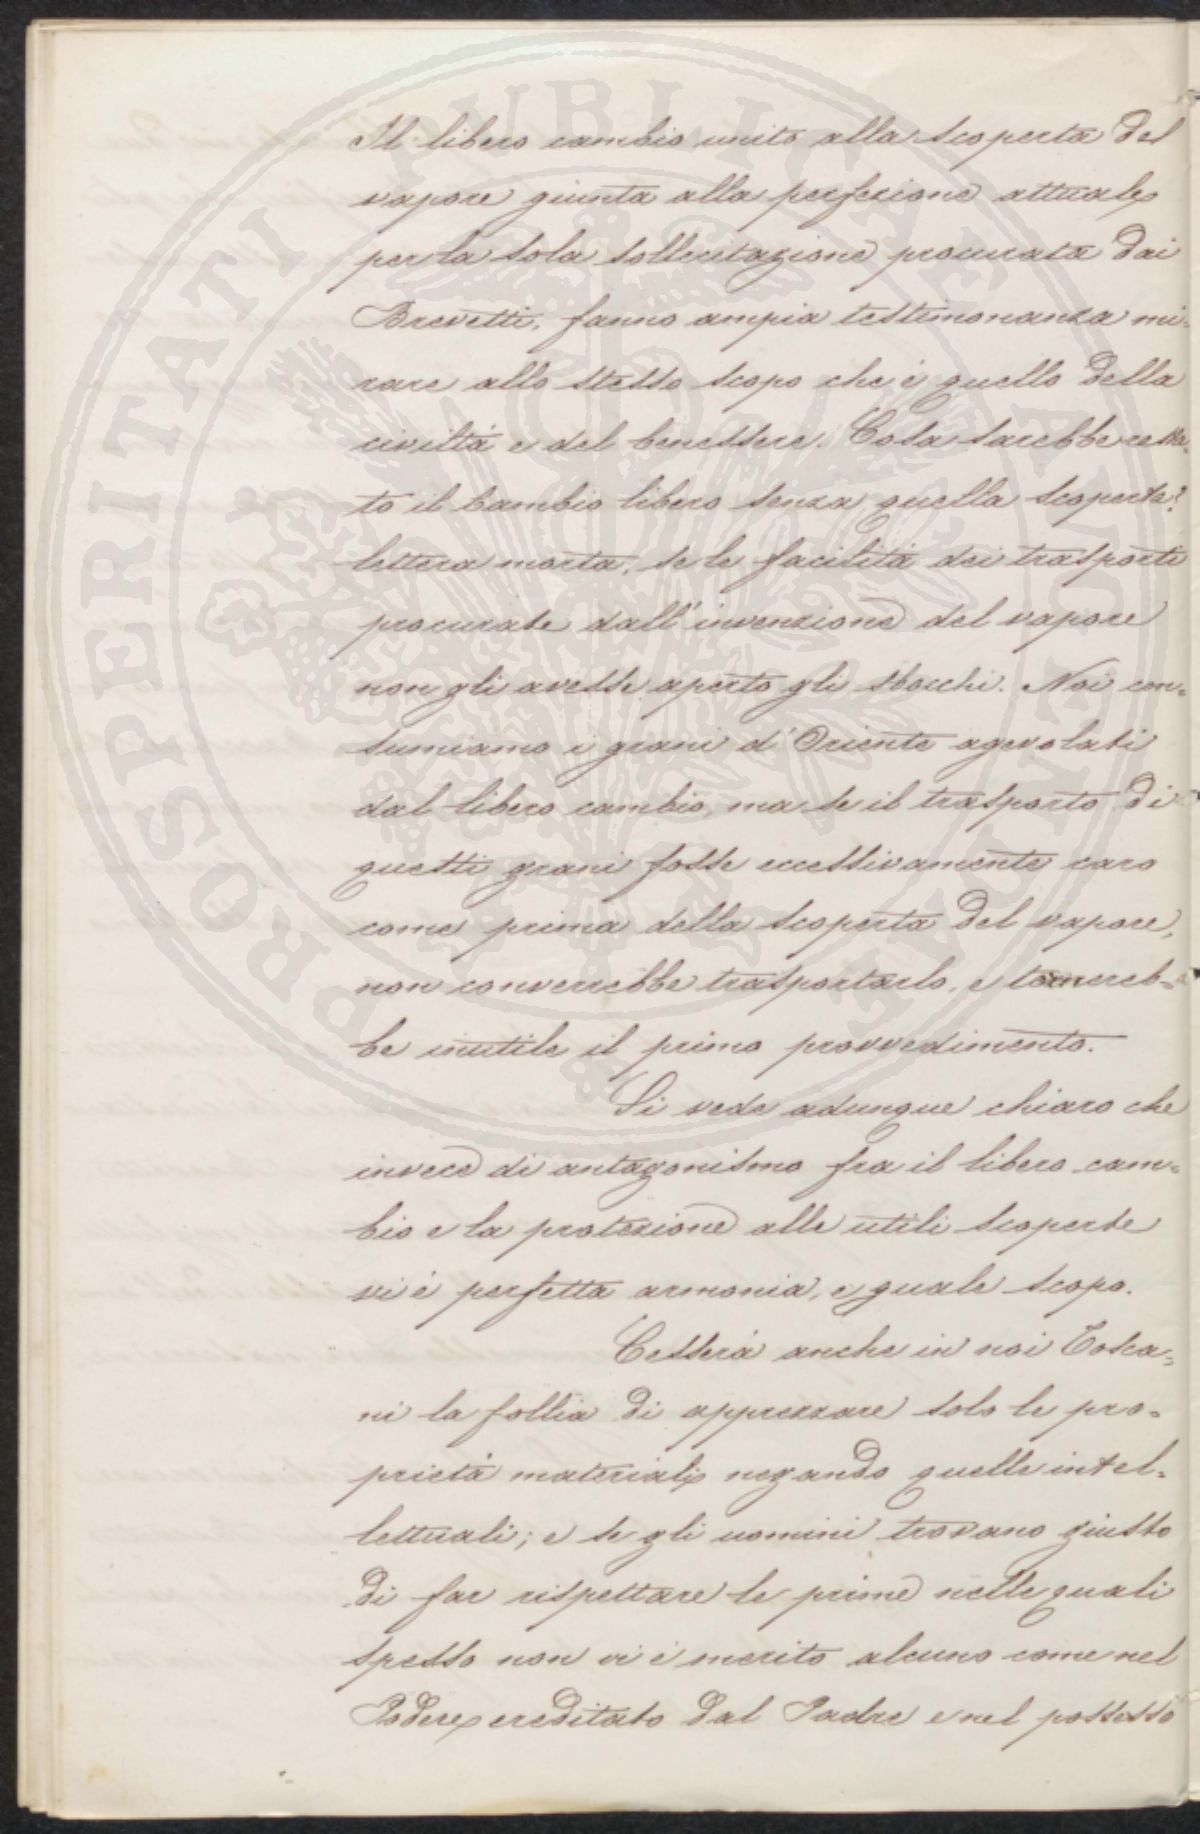 Il libero cambio unito alla scoperta del
vapore giunta alla perfezione attuale
per la sola sollecitazione procurata dai
Brevetti, fanno ampia testimonanza mi-
rare allo stesso scopo che è quello della
civiltà e del benessere. Cosa sarebbe resta-
to il Cambio libero senza quella scoperta?
lettera morta, se le facilità dei trasporti
procurate dall'invenzione del vapore
non gli avesse aperto gli sbocchi. Noi con=
sumiamo i grani d'Oriente agevolati
dal libero cambio, ma se il trasporto di
questi grani fosse eccessivamente caro
come prima della scoperta del vapore,
non converrebbe trasportarlo, e tornereb=
be inutile il primo provvedimento.
Si vede adunque chiaro che
invece di antagonismo fra il libero cam=
bio e la protezione alle utili scoperte
vi è perfetta armonia, e guale scopo.
Cesserà anche in noi Tosca=
ni la follia di apprezzare solo le pro=
prietà materiali, negando quelle intel=
lettuali; e se gli uomini trovano giusto
di far rispettare le prime nelle quali
spesso non vi è merito alcuno come nel
Podere ereditato dal Padre e nel possesso
PROSPERITATI PUBLICAE AUGENDAE